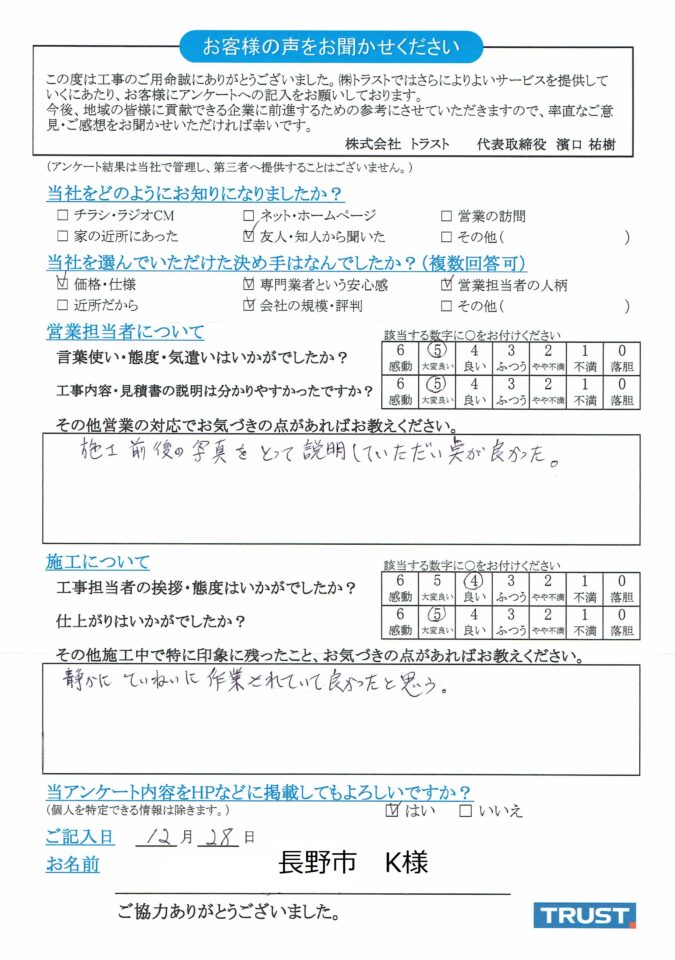 お客様の声をお聞かせください
この度は工事のご用命誠にありがとうございました。㈱トラストではさらによりよいサービスを提供して
いくにあたり、お客様にアンケートへの記入をお願いしております。
今後、地域の皆様に貢献できる企業に前進するための参考にさせていただきますので、率直なご意
見・ご感想をお聞かせいただければ幸いです。
株式会社 トラスト 代表取締役 濱口 祐樹
(アンケート結果は当社で管理し、第三者へ提供することはございません。)
当社をどのようにお知りになりましたか？
□ チラシ・ラジオCM □ ネット・ホームページ □ 営業の訪問
□ 家の近所にあった ☑ 友人・知人から聞いた □ その他( )
当社を選んでいただけた決め手はなんでしたか？(複数回答可)
☑ 価格・仕様 ☑ 専門業者という安心感 ☑ 営業担当者の人柄
□ 近所だから ☑ 会社の規模・評判 □ その他( )
営業担当者について 該当する数字に○をお付けください
言葉使い・態度・気遣いはいかがでしたか？ 6 ⑤ 4 3 2 1 0
感動 大変良い 良い ふつう やや不満 不満 落胆
工事内容・見積書の説明は分かりやすかったですか？ 6 ⑤ 4 3 2 1 0
感動 大変良い 良い ふつう やや不満 不満 落胆
その他営業の対応でお気づきの点があればお教えください。
施工前後の写真をとって説明していただい実が良かった。
施工について 該当する数字に○をお付けください
工事担当者の挨拶・態度はいかがでしたか？ 6 5 ④ 3 2 1 0
感動 大変良い 良い ふつう やや不満 不満 落胆
仕上がりはいかがでしたか？ 6 ⑤ 4 3 2 1 0
感動 大変良い 良い ふつう やや不満 不満 落胆
その他施工中で特に印象に残ったこと、お気づきの点があればお教えください。
静かにていねいに作業されていて良かったと思う。
当アンケート内容をHPなどに掲載してもよろしいですか？
(個人を特定できる情報は除きます。) ☑ はい □ いいえ
ご記入日 12 月 28 日
お名前 長野市 K様
ご協力ありがとうございました。
TRUST.